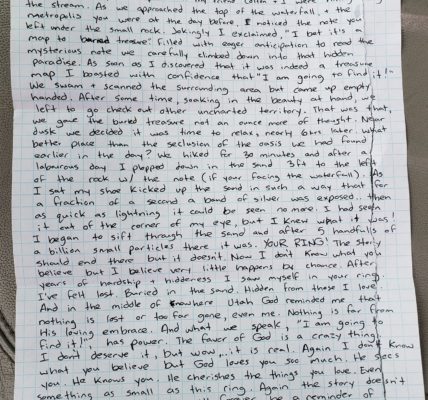 the stream. As we approached the top of the waterfall, & the
metropolis you were at the day before, I noticed the note you
left under the small rock. Jokingly I exclaimed, "I bet it's a
map to buried treasure" Filled with eager anticipation to read the
mysterious note we carefully climbed down into that hidden
paradise. As soon as I discovered that it was indeed a treasure
map I boosted with confidence that "I am going to find it!"
We swam + scanned the surrounding area but came up empty
handed. After some time, soaking in the beauty at hand, we
left to go check out other uncharted territory. That was that,
we gave the buried treasure not an ounce more of thought. Near
dusk we decided it was time to relax, nearly 6 hrs. later. What
better place than the seclusion of the oasis we had found
earlier in the day? We hiked for 30 minutes and after a
labourous day I plopped down in the sand 3ft to the left
of the rock w/ the note (if your facing the waterfall). As
I sat my shoe kicked up the sand in such a way that for
a fraction of a second a band of silver was exposed.. then
as quick as lightning it could be seen no more. I had seen
it out of the corner of my eye, but I knew what it was!
I began to sift through the sand and after 5 handfulls of
a billion small particles there it was. YOUR RING! The story
should end there but it doesn't. Now I don't know what you
believe but I believe very little happens by chance. After
years of hardship + hidderness I saw myself in your ring.
I've felt lost. Buried in the sand. Hidden from those I love.
And in the middle of nowhere Utah God reminded me that
nothing is lost or too far gone, even me. Nothing is far from
His loving embrace. And what we speak, "I am going to
find it!", has power. The favor of God is a crazy thing.
I don't deserve it, but wow,..it is real. Again I don't know
what you believe but God loves you soo much. He sees
you. He knows you. He cherishes the things you love. Even
something as small as this ring. Again the story doesn't
forever be a reminder of